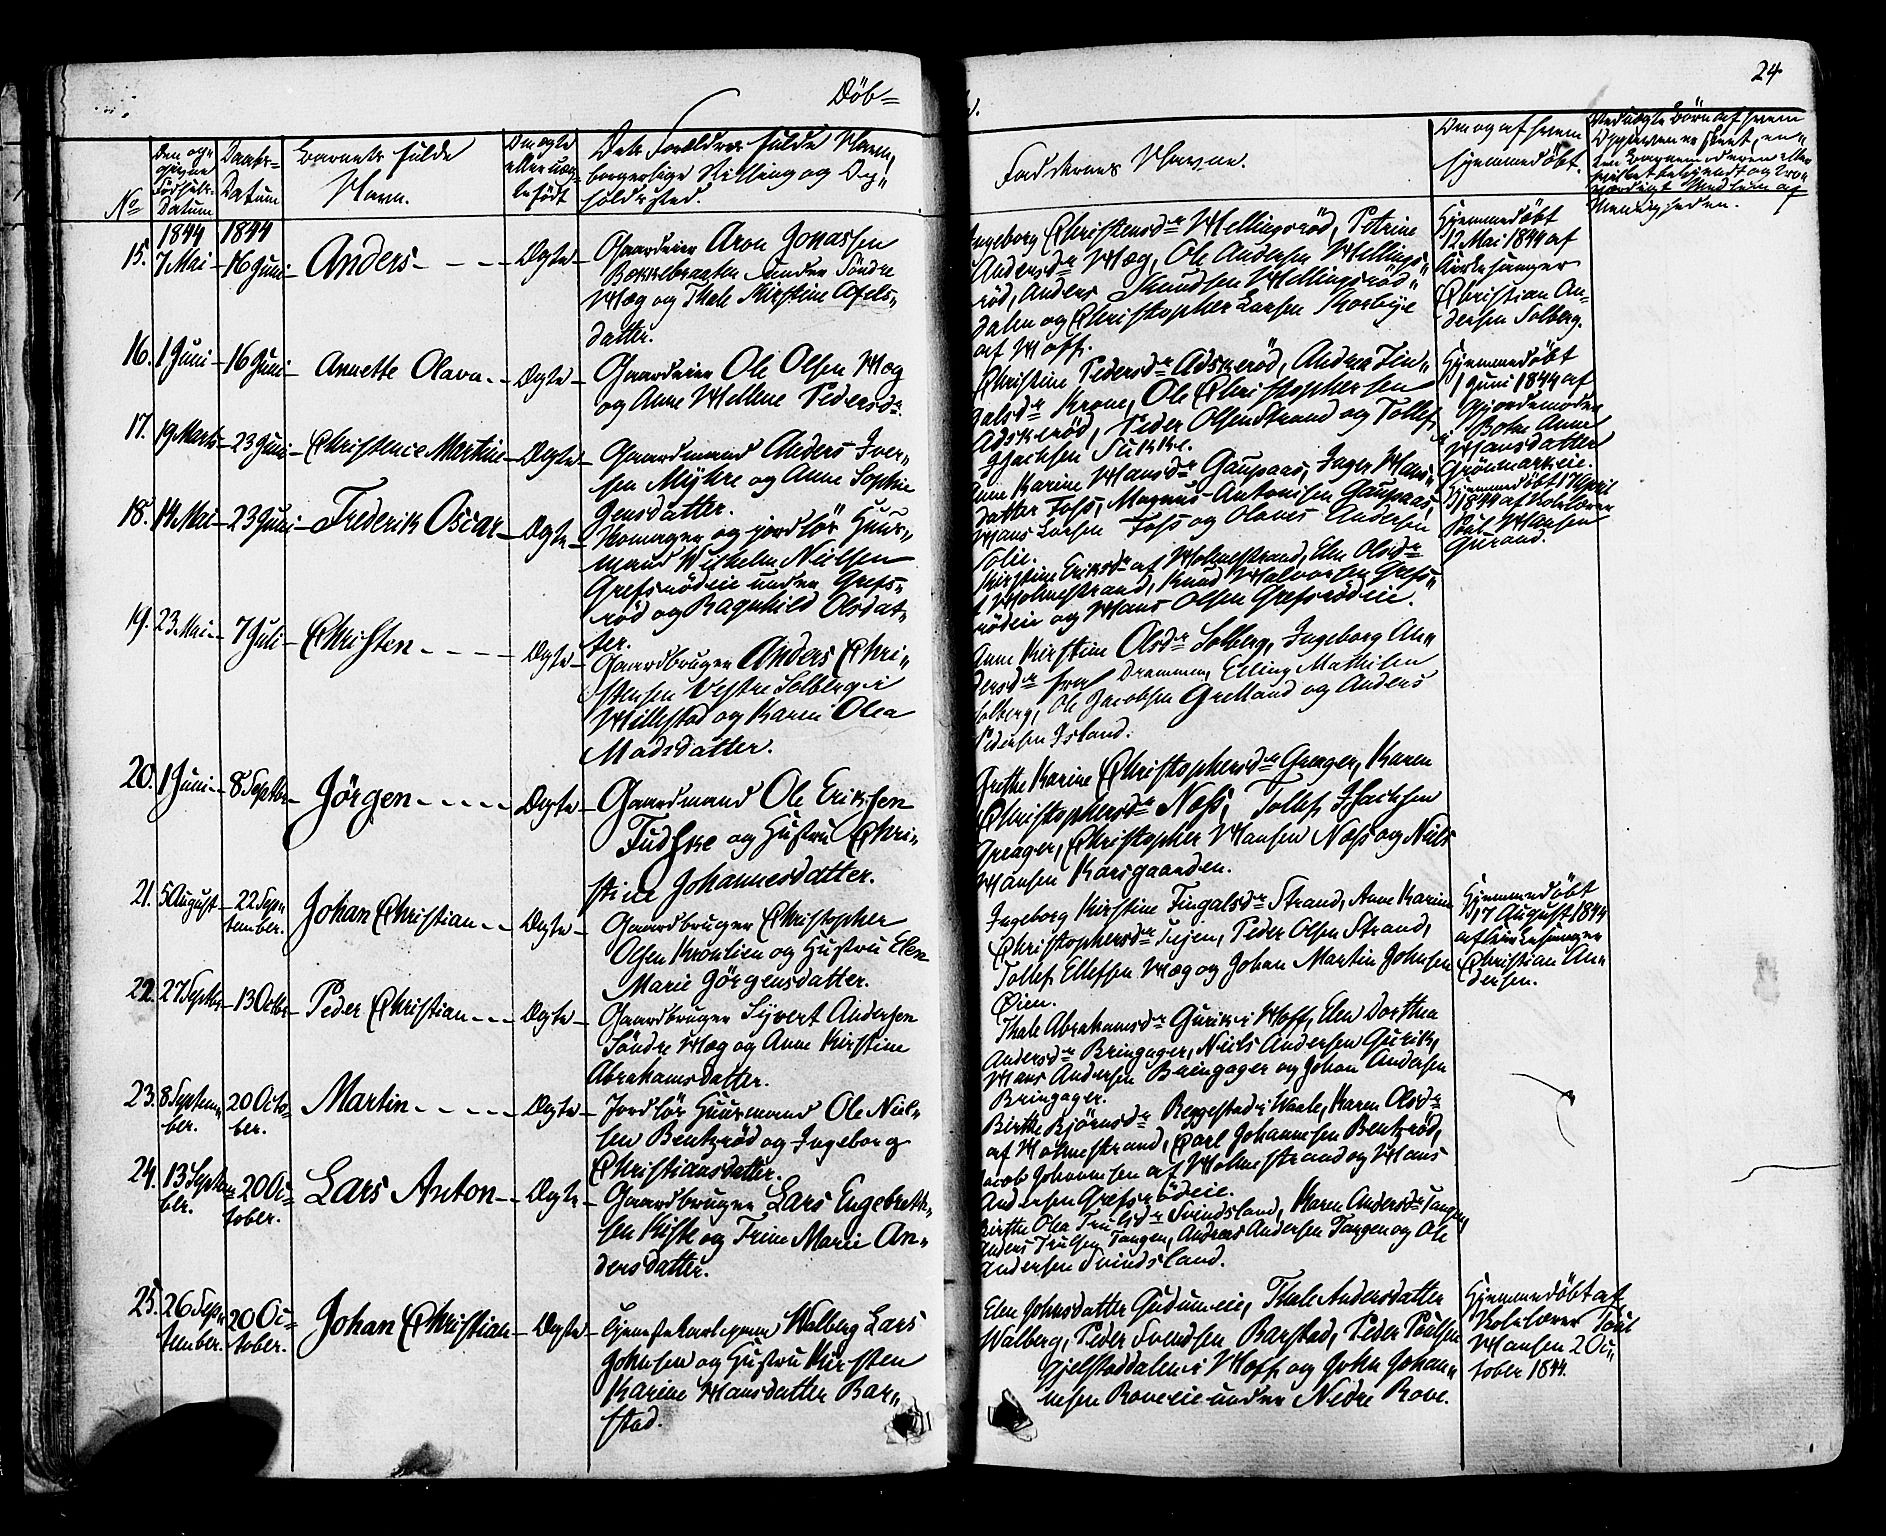 Döb=
24
No
Den op=
givne
Födsels=
Datum
Daabs=
Datum
Barnets fulde
Navn.
Om ægte
eller uæg=
te født
Dets Forældres fulde Navn,
borgerlige Stilling og Op=
holdssted.
Faddernes Navne.
Om og af hvem
hjemmedöbt.
1844 1844
15. 7 Mai 16 Juni Anders Ægte
Gaardeier Aron Jonassen
under Söndre
Hæg og Thale Kirstine Axels=
datter.
Ingeborg Christensdr Hellingsröd, Petrine
Andersdr Hæg, Ole Andersen Hellings=
röd, Anders Knudsen Hellingsröd=
dalen og Christopher Larsen
af Hoff.
Hjemmedöbt
12 Mai 1844 af
Kirkesanger
Christian An=
dersen Solberg.
16. 1 Juni 16 Juni Annette Olava Ægte
Gaardeier Ole Olsen Hæg
og Anne Helene Pedersdr.
Christine Pedersdr Adskeröd, Andrea Fin=
galsdr Krone, Ole Christophersen
Adskeröd, Peder Olsen Strand og Tollef
Isachsen
Hjemmedöbt
1 Juni 1844 af
Gjordemoder
Anne
Hansdatter
17. 19 Marts 23 Juni Christence Martine Ægte
Gaardmand Anders Iver=
sen Myhre og Anne Sophie
Jensdatter.
Anne Karine Hansdr Gaupaas, Inger Hans=
datter Foss, Magnus Antonisen Gaupaas,
Hans Larsen Foss og Olaves Andersen
Solie.
Hjemmedöbt 17 April
1844 af Skolelærer
Poul Hansen
18. 14 Mai 23 Juni Frederik Oscar Ægte
Skomager og jordlös Huus=
mand Wilhelm Nielsen
Grefsrödeie under Grefs=
röd og Ragnhild Olsdat=
ter.
Kirstine Eriksdr af Holmestrand, Elen Olsdr
af Holmestrand, Knud Halvorsen Grefs=
rödeie og Hans Olsen Grefsrödeie.
19. 23 Mai 7 Juli Christen Ægte
Gaardbruger Anders Chri=
stensen Vestre Solberg i
Hillestad og Karen Olea
Madsdatter.
Anne Kirstine Olsdr Solberg, Ingeborg An=
dersdr fra Drammen, Erling Mathisen
Solberg, Ole Jacobsen Grelland og Anders
Pedersen Island.
20. 1 Juni 8 Septbr Jörgen Ægte
Gaardmand Ole Eriksen
og Hustru Chri=
stine Johannesdatter.
Grethe Karine Christophersdr Greager, Karen
Christophersdr Næss, Tollef Isachsen
Greager, Christopher Hansen Næss og Niels
Hansen Karsgaarden.
21. 5 August 22 Sep=
tember. Johan Christian Ægte
Gaardbruger Christopher
Olsen Kronlien og Hustru Elen
Marie Jörgensdatter.
Ingeborg Kirstine Fingalsdr Strand, Anne Karine
Christophersdr Tejen, Peder Olsen Strand,
Tollef Ellefsen Hæg og Johan Martin Johnsen
Öien.
Hjemmedöbt
17 August 1844
af Kirkesanger
Christian An=
dersen.
22. 27 Septbr 13 Octbr Peder Christian Ægte
Gaardbruger Syvert Andersen
Söndre Hæg og Anne Kirstine
Abrahamsdatter.
Thale Abrahamsdr Gurik i Hoff, Elen Dorthea
Andersdr Bringager, Niels Andersen Gurik,
Hans Andersen Bringager og Johan Andersen
Bringager.
23. 8 Septem=
ber. 20 Octo=
ber. Martin Ægte
Jordlös Huusmand Ole Niel=
sen Bentsröd og Ingeborg
Christiansdatter.
Birthe Björnsdr Reggestad i Waale, Karen Olsdr
af Holmestrand, Carl Johannesen Bentsröd,
Jacob Johannesen af Holmestrand og Hans
Andersen Grefsrödeie.
24. 13 Septem=
ber. 20 Oc=
tober. Lars Anton Ægte
Gaardbruger Lars Engebreth=
sen Kiste og Trine Marie An=
dersdatter.
Birthe Olea Trulsdr Svindsland, Karen Andersdr Tangen,
Anders Trulsen Tangen, Andreas Andersen Tangen og Ole
Andersen Svindsland.
25. 26 Sep=
tember. 20 Oc=
tober. Johan Christian Ægte
Tjenestekarl paa Walberg Lars
Johnsen og Hustru Kirsten
Karine Hansdatter Bar=
stad.
Elen Johnsdatter Gudumeie, Thale Andersdatter
Walberg, Peder Svendsen Barstad, Peder Poulsen
Gjelstaddalen i Hoff og John Johan=
nesen Roveeie under Nedre Rove.
Hjemmedöbt af
Skolelærer Poul
Hansen 2 Oc=
tober 1844.